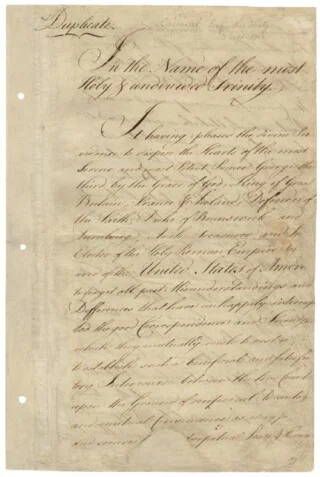 Duplicate.
In the Name of the most
Holy & undivided Trinity.
It having pleased the Divine Pro
vidence to dispose the Hearts of the most
Serene and most Potent Prince George the
third, by the Grace of God, King of Great
Britain, France & Ireland, Defender of
the Faith, Duke of Brunswick and
Lunebourg, Arch Treasurer and
Elector of the Holy Roman Empire &c
and of the United States of Amer
to forget all past Misunderstandings and
Differences that have unhappily interrup
ted the good Correspondence and Friendship
which they mutually wish to
to establish such a beneficial and satisfac
tory Intercourse between the two
upon the Ground of reciprocal
and mutual Convenience as may
and secure Perpetual Peace &